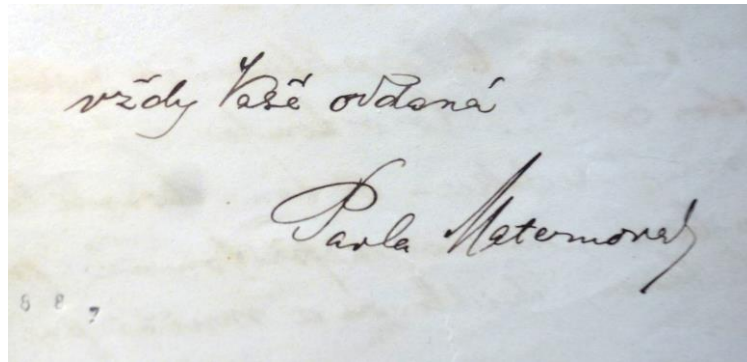 vždy Vaše oddaná
Pavla Maternová
8 8 9